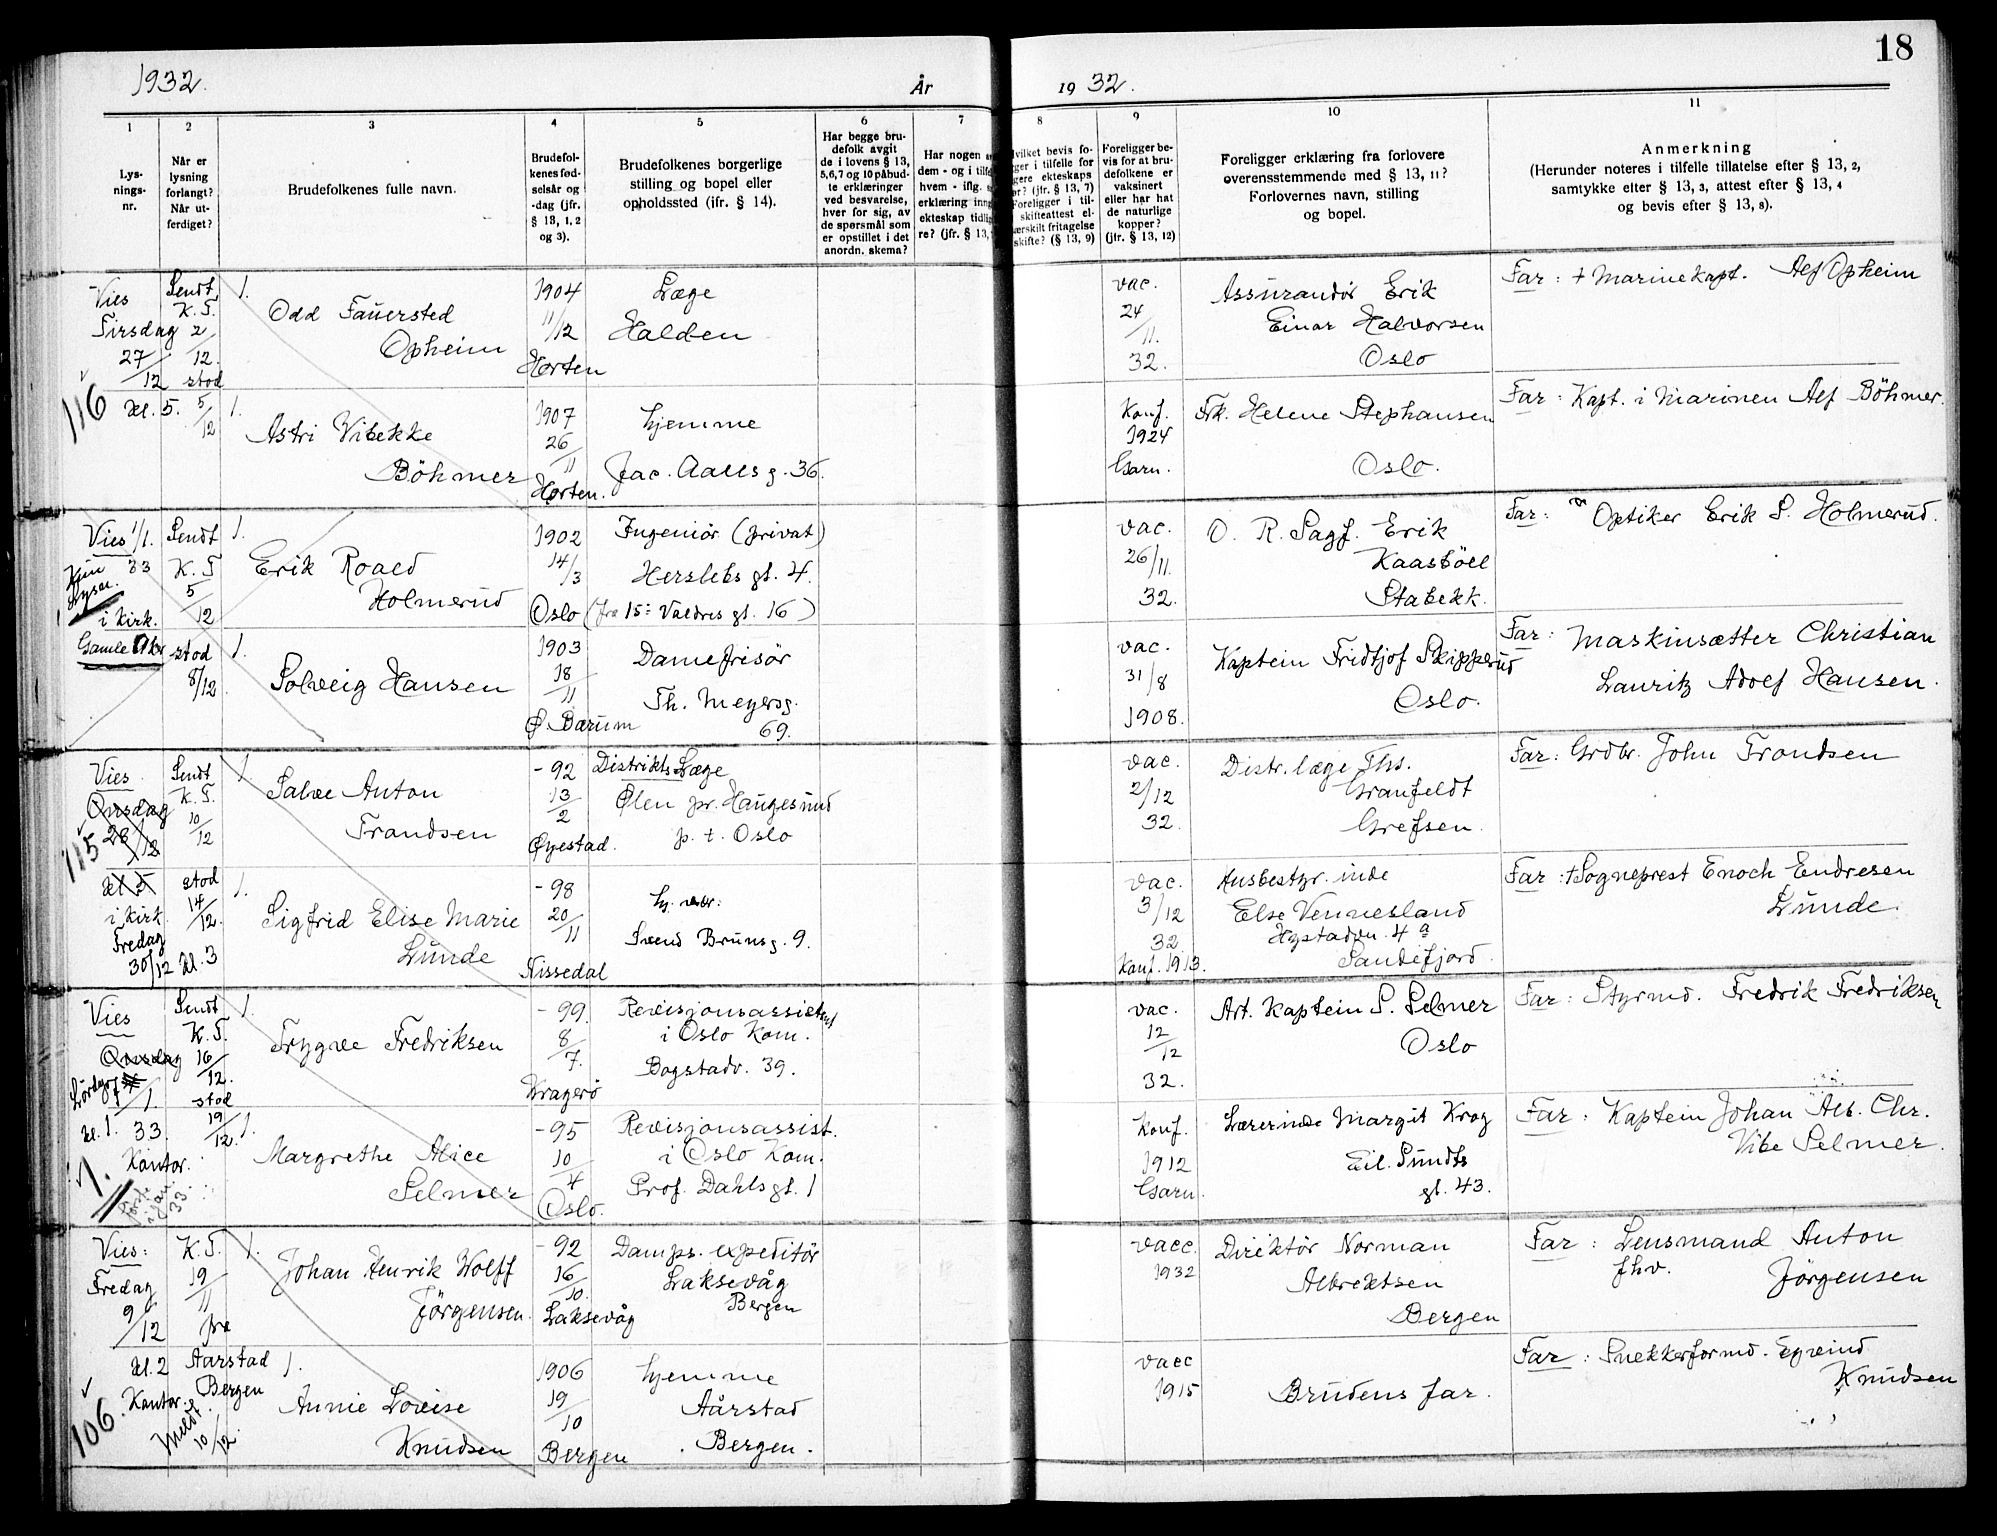 18
1932.
År
19 32.
1
2
3
4
5
6
7
8
9
10
11
Lys-
nings-
nr.
Når er
lysning
forlangt?
Når ut-
ferdiget?
Brudefolkenes fulle navn.
Brudefol-
kenes fød-
selsår og
-dag (jfr.
§ 13, 1, 2
og 3).
Brudefolkenes borgerlige
stilling og bopel eller
opholdssted (ifr. § 14).
Har begge bru-
defolk avgit
de i lovens § 13,
5,6,7 og 10 påbud-
te erklæringer
ved besvarelse,
hver for sig, av
de spørsmål som
er opstillet i det
anordn. skema?
Har nogen
dem - og i tilf
hvem - iflg.
erklæring inng
ekteskap tidlig
re? (jfr. § 13,
vilket bevis fo-
ger i tilfelle for
gere ekteskaps
or? (jfr. § 13, 7)
Foreligger i til-
skifteattest el-
ærskilt fritagelse
skifte? (§ 13, 9)
Foreligger be-
vis for at bru-
defolkene er
vaksinert
eller har hat
de naturlige
kopper?
(jfr. § 13, 12)
Foreligger erklæring fra forlovere
overensstemmende med § 13, 11?
Forlovernes navn, stilling
og bopel.
Anmerkning
(Herunder noteres i tilfelle tillatelse efter § 13, 2,
samtykke efter § 13, 3, attest efter § 13, 4
og bevis efter § 13, 8).
Vies
Tirsdag
27/12
kl. 5.
116
Sendt
K. T.
2/12.
stod
5/12
1.
Odd Fauersted
Opheim
1904
11/12
Horten
Læge
Halden
vac.
24/11.
32.
Assurandör Erik
Einar Halvorsen
Oslo
Far : + Marinekapt. Alf Opheim
1.
Astri Vibekke
Böhmer
1907
26/11
Horten.
hjemme
Jac. Aalls g. 36.
Konf.
1924
Garn.
Frk. Helene Stephansen
Oslo.
Far : Kapt. i Marinen Alf Böhmer.
Vies 1/1.
33
i kirk.
Gamle Aker
Sendt
K. T
5/12
stod
8/12
1.
Erik Roald
Holmerud
1902
14/3
Oslo
Ingeniör (privat)
Herslebs gt. 4.
(fra 15: Valdres gt. 16)
vac.
26/11.
32.
O. R. Sagf. Erik
Kaasböll
Stabekk.
Far : Optiker Erik S. Holmerud.
1.
Solveig Hansen
1903
18/11
Ø. Bærum
Damefrisör
Th. Meyersg.
69.
vac.
31/8
1908.
Kaptein Fridtjof Skipperud
Oslo.
Far : Maskinsætter Christian
Lauritz Adolf Hansen.
Vies
Onsdag
28/12
kl 5
i kirk.
Fredag
30/12 kl. 3
115
Sendt
K. T.
10/12
stod
14/12.
1.
Salve Anton
Frandsen
- 92
13/2
Øyestad.
Distrikts Læge
Ølen pr. Haugesund
p. t. Oslo
vac.
2/12
32.
Distr. læge Ths.
Granfeldt
Grefsen.
Far : Grdbr. John Frandsen
1.
Sigfrid Elise Marie
Lunde
- 98
20/11
Nissedal
hj. vær.
Svend Brunsg. 9.
vac.
3/12
32
Konf. 1913.
Husbestyr. inde
Else Vennesland
Hystadvn. 4 a
Sandefjord.
Far : + Sogneprest Enoch Endresen
Lunde.
Vies
Onsdag
Lördag
7/1.
kl. 1. 33.
Kontor.
1.
Sendt
K. T.
16/12.
stod
19/12.
1.
Trygve Fredriksen
- 99.
8/7.
Kragerö
Revisjonsassistent
i Oslo Kom.
Bogstadv. 39.
vac.
12/12
32.
Art. Kaptein S. Selmer
Oslo
Far : Styrmd. Fredrik Fredriksen
1.
Margrethe Alice
Selmer
- 95
10/4
Oslo.
Revisjonsassist.
i Oslo Kom.
Prof. Dahls gt. 1
Konf.
1912
Garn.
Lærerinde Margit Krog
Eil. Sundts
gt. 43.
Far : Kaptein Johan Alb. Chr.
Vibe Selmer.
Vies:
Fredag
9/12
kl. 2
Kontor.
106.
K. T.
19/11
fra
Aarstad
Bergen
Meldt.
10/12.
1.
Johan Henrik Wolff
Jörgensen.
- 92
16/10.
Laksevåg
Damps. expeditör
Laksevåg
Bergen
vacc.
1932
Direktör Norman
Albrektsen
Bergen
Far : Lensmand Anton
fhv.
Jörgensen
1.
Annie Lovise
Knudsen
1906
19/10
Bergen
hjemme
Aårstad
Bergen.
vacc
1915
Brudens far.
Far : Snekkerformd. Eyvind
Knudsen